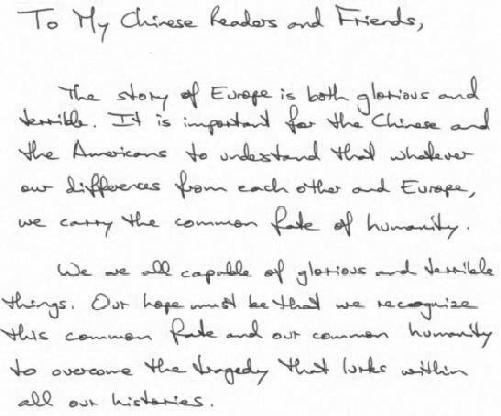 To My Chinese Readers and Friends,
The story of Europe is both glorious and
terrible. It is important for the Chinese and
the Americans to understand that whatever
our differences from each other and Europe,
we carry the common fate of humanity.
We are all capable of glorious and terrible
things. Our hope must be that we recognize
this common fate and our common humanity
to overcome the tragedy that lurks within
all our histories.